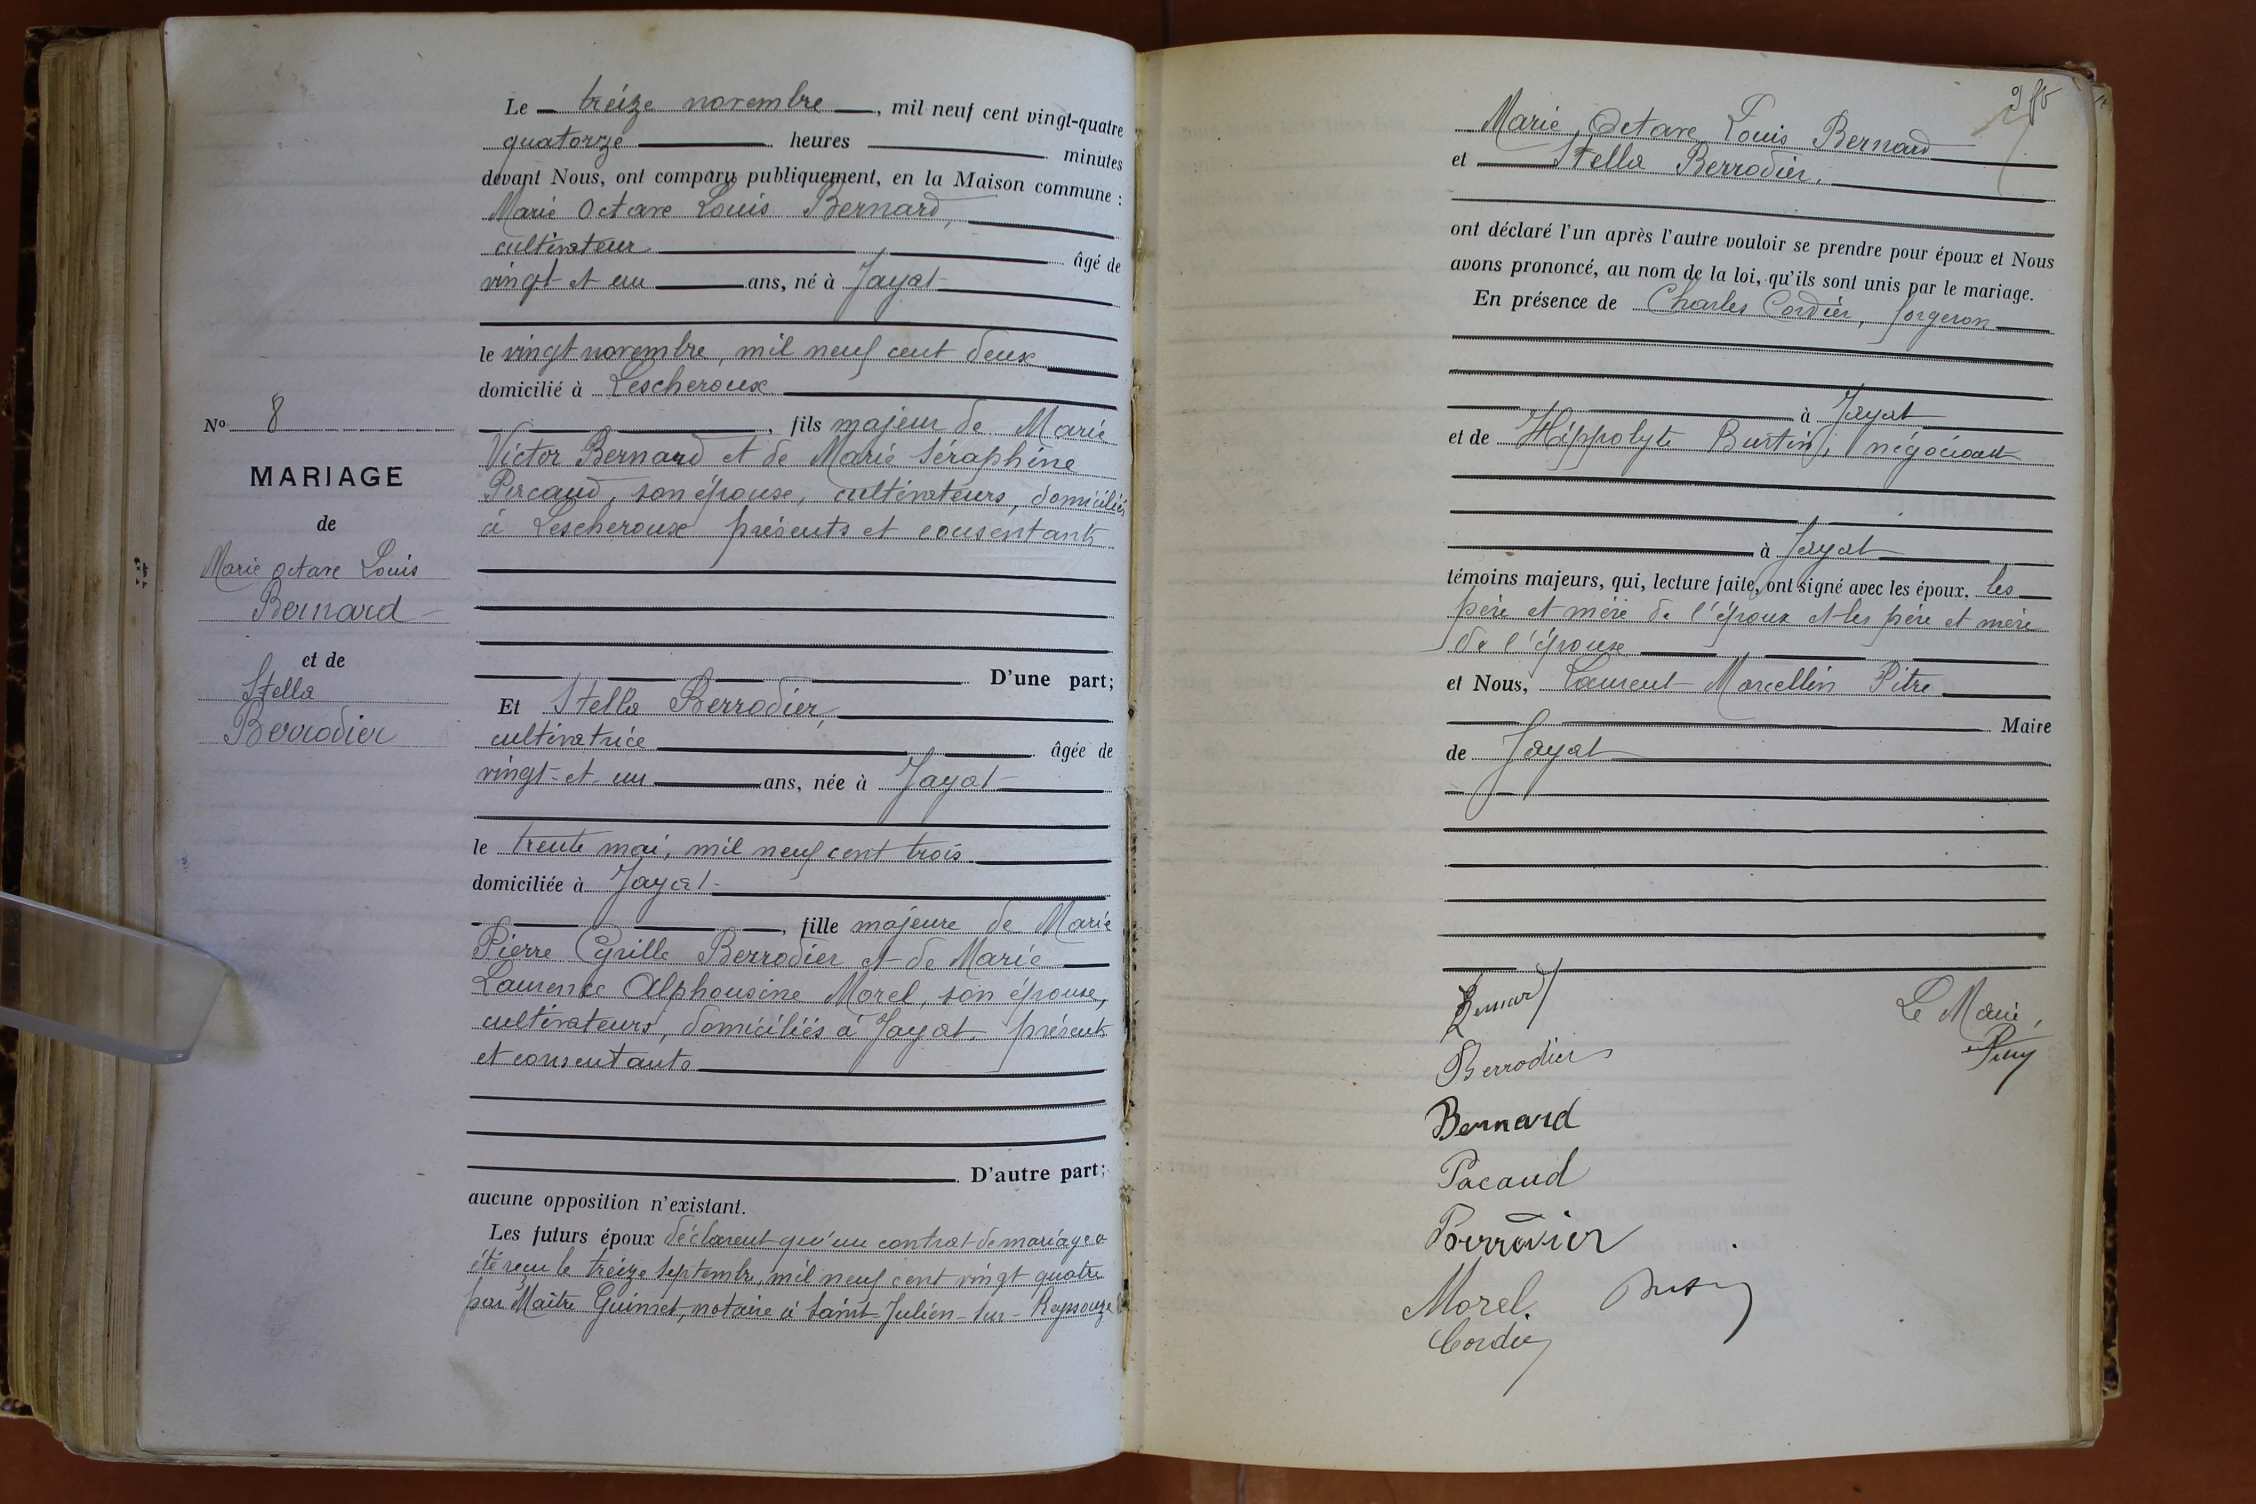 Le treize novembre, mil neuf cent vingt-quatre
quatorze heures minutes
devant Nous, ont comparu publiquement, en la Maison commune :
Marie Octave Louis Bernard,
cultivateur âgé de
vingt et un ans, né à Jayat
le vingt novembre, mil neuf cent deux
domicilié à Lescheroux
, fils majeur de Marie
Victor Bernard et de Marie Séraphine
Pacaud, son épouse, cultivateurs, domiciliés
à Lescheroux présents et consentants
D'une part;
Nº 8
MARIAGE
de
Marie Octave Louis
Bernard
et de
Stella
Berrodier
Et Stella Berrodier,
cultivatrice âgée de
vingt-et-un ans, née à Jayat
le trente mai, mil neuf cent trois
domiciliée à Jayat
, fille majeure de Marie
Pierre Cyrille Berrodier et de Marie
Laurence Alphonsine Morel, son épouse,
cultivateurs, domiciliés à Jayat, présents
et consentants
D'autre part;
aucune opposition n'existant.
Les futurs époux déclarent qu'un contrat de mariage a
été reçu le treize septembre, mil neuf cent vingt quatre
par Maître notaire à Saint-Julien-sur-Reyssouze
Marie, Octave Louis Bernard
et Stella Berrodier,
ont déclaré l'un après l'autre vouloir se prendre pour époux et Nous
avons prononcé, au nom de la loi, qu'ils sont unis par le mariage.
En présence de Charles Cordier, forgeron
à Jayat
et de Hippolyte Burtin, négociant
à Jayat
témoins majeurs, qui, lecture faite, ont signé avec les époux, les
père et mère de l'époux et les père et mère
de l'épouse
et Nous, Laurent Marcellin Pitre
Maire
de Jayat
Bernard
Le Maire,
Berrodier
Bernard
Pacaud
Berrodier
Morel
Cordier